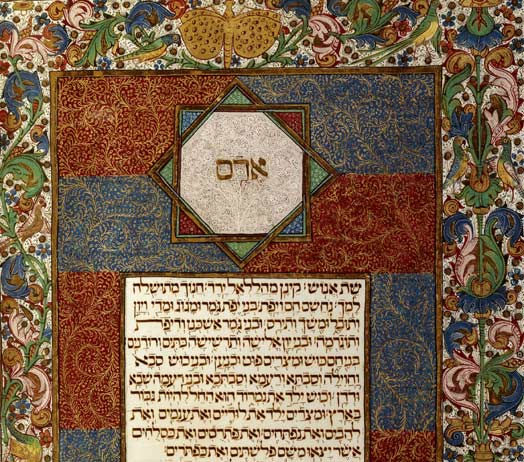 אדם
שת אנוש׃ קינן מהללאל ירד׃ חנוך מתושלח
למך׃ נח שם חם ויפת׃ בני יפת גמר ומגוג ומדי ויון
ותובל ומשך ותירס׃ ובני גמר אשכנז ודיפת
ותוגרמה׃ ובני יון אלישה ותרשישה כתים ורודנים
בני חם כוש ומצרים פוט וכנען׃ ובני כוש סבא
וחוילה וסבתא ורעמא וסבתכא ובני רעמא שבא
ודדן׃ וכוש ילד את נמרוד הוא החל להיות גבור
בארץ׃ ומצרים ילד את לודיים ואת ענמים ואת
להבים ואת נפתחים׃ ואת פתרסים ואת כסלחים
אשר יצאו משם פלשתים ואת כפתרים